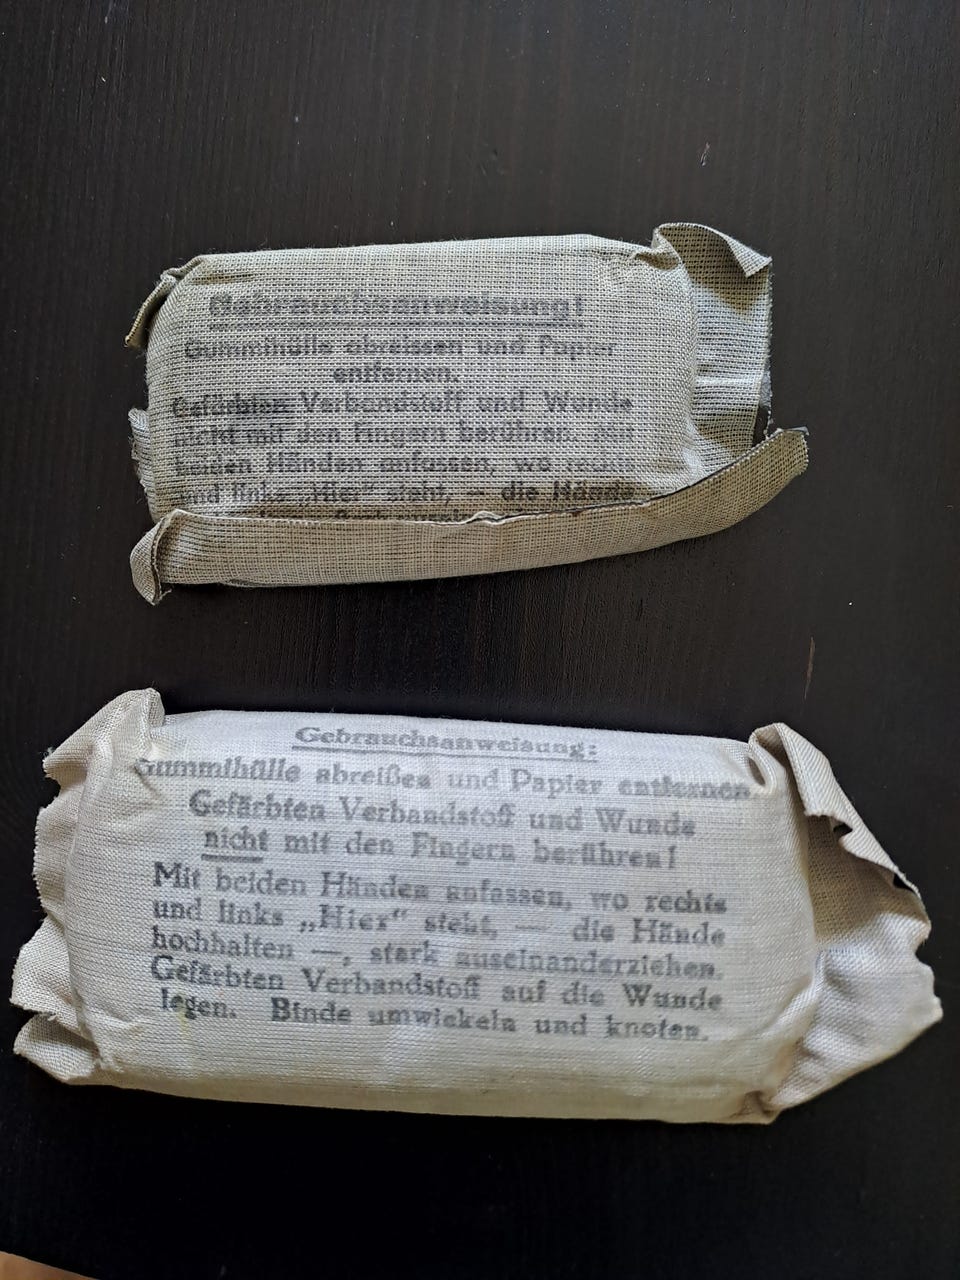 Gebrauchsanweisung!
Gummihülle abreissen und Papier
entfernen.
Gefärbten Verbandstoff und Wunde
nicht mit den Fingern berühren. Mit
beiden Händen anfassen, wo rechts
und links „Hier“ steht, – die Hände
Gebrauchsanweisung:
Gummihülle abreißen und Papier entfernen.
Gefärbten Verbandstoff und Wunde
nicht mit den Fingern berühren!
Mit beiden Händen anfassen, wo rechts
und links „Hier“ steht, — die Hände
hochhalten —, stark auseinanderziehen.
Gefärbten Verbandstoff auf die Wunde
legen. Binde umwickeln und knoten.